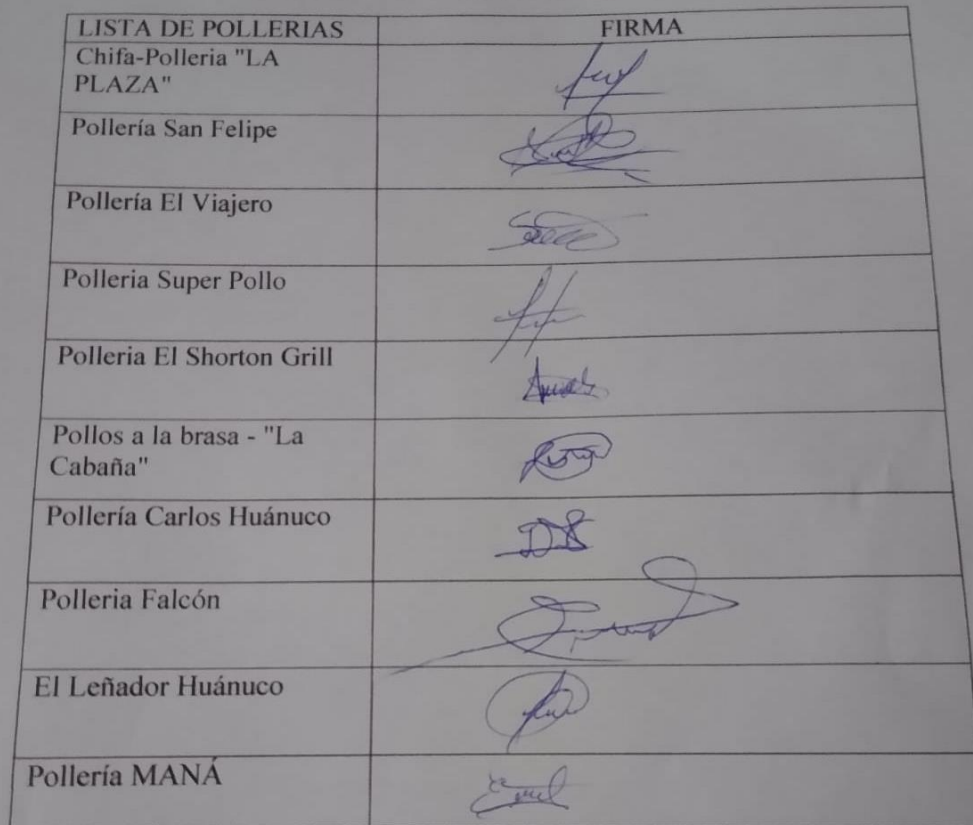 LISTA DE POLLERIAS FIRMA
Chifa-Polleria "LA
PLAZA"
Pollería San Felipe
Pollería El Viajero
Polleria Super Pollo
Polleria El Shorton Grill
Pollos a la brasa - "La
Cabaña"
Pollería Carlos Huánuco
Polleria Falcón
El Leñador Huánuco
Pollería MANÁ